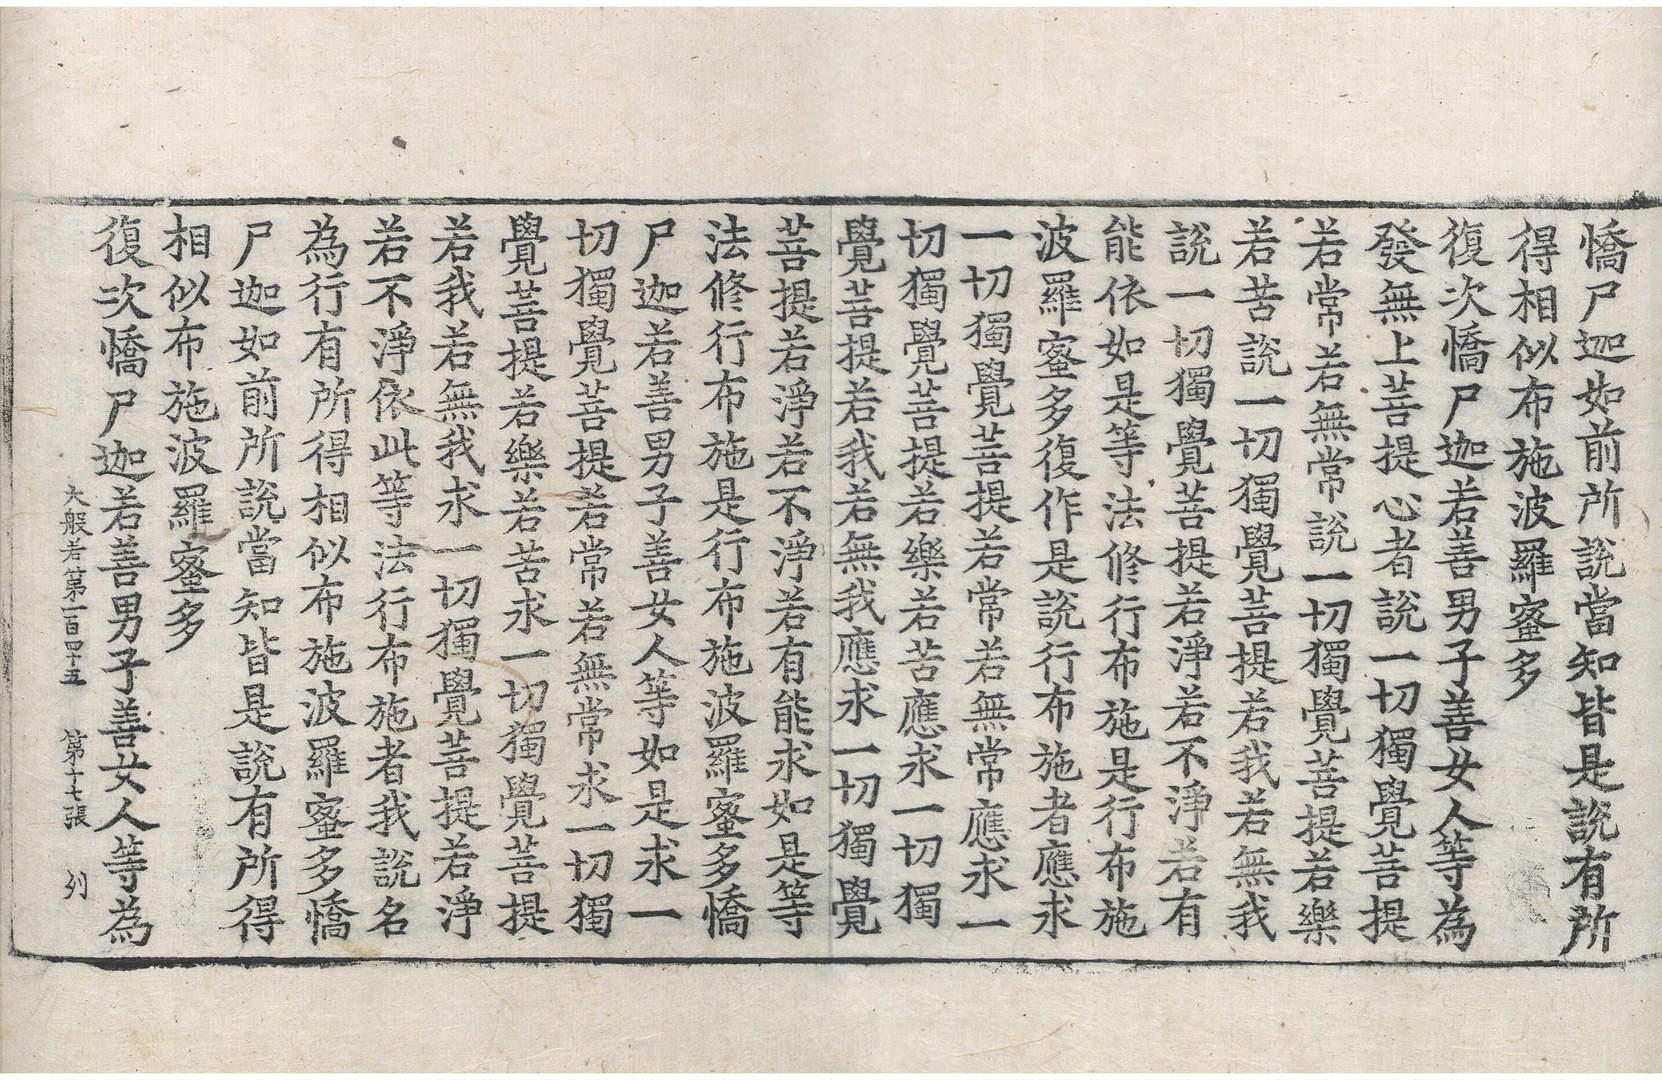 憍尸迦如前所說當知皆是說有所
得相似布施波羅蜜多
復次憍尸迦若善男子善女人等為
發無上菩提心者說一切獨覺菩提
若常若無常說一切獨覺菩提若樂
若苦說一切獨覺菩提若我若無我
說一切獨覺菩提若淨若不淨若有
能依如是等法修行布施是行布施
波羅蜜多復作是說行布施者應求
一切獨覺菩提若常若無常應求一
切獨覺菩提若樂若苦應求一切獨
覺菩提若我若無我應求一切獨覺
菩提若淨若不淨若有能求如是等
法修行布施是行布施波羅蜜多憍
尸迦若善男子善女人等如是求一
切獨覺菩提若常若無常求一切獨
覺菩提若樂若苦求一切獨覺菩提
若我若無我求一切獨覺菩提若淨
若不淨依此等法行布施者我說名
為行有所得相似布施波羅蜜多憍
尸迦如前所說當知皆是說有所得
相似布施波羅蜜多
復次憍尸迦若善男子善女人等為
大般若第一百四十五 第十七張 列